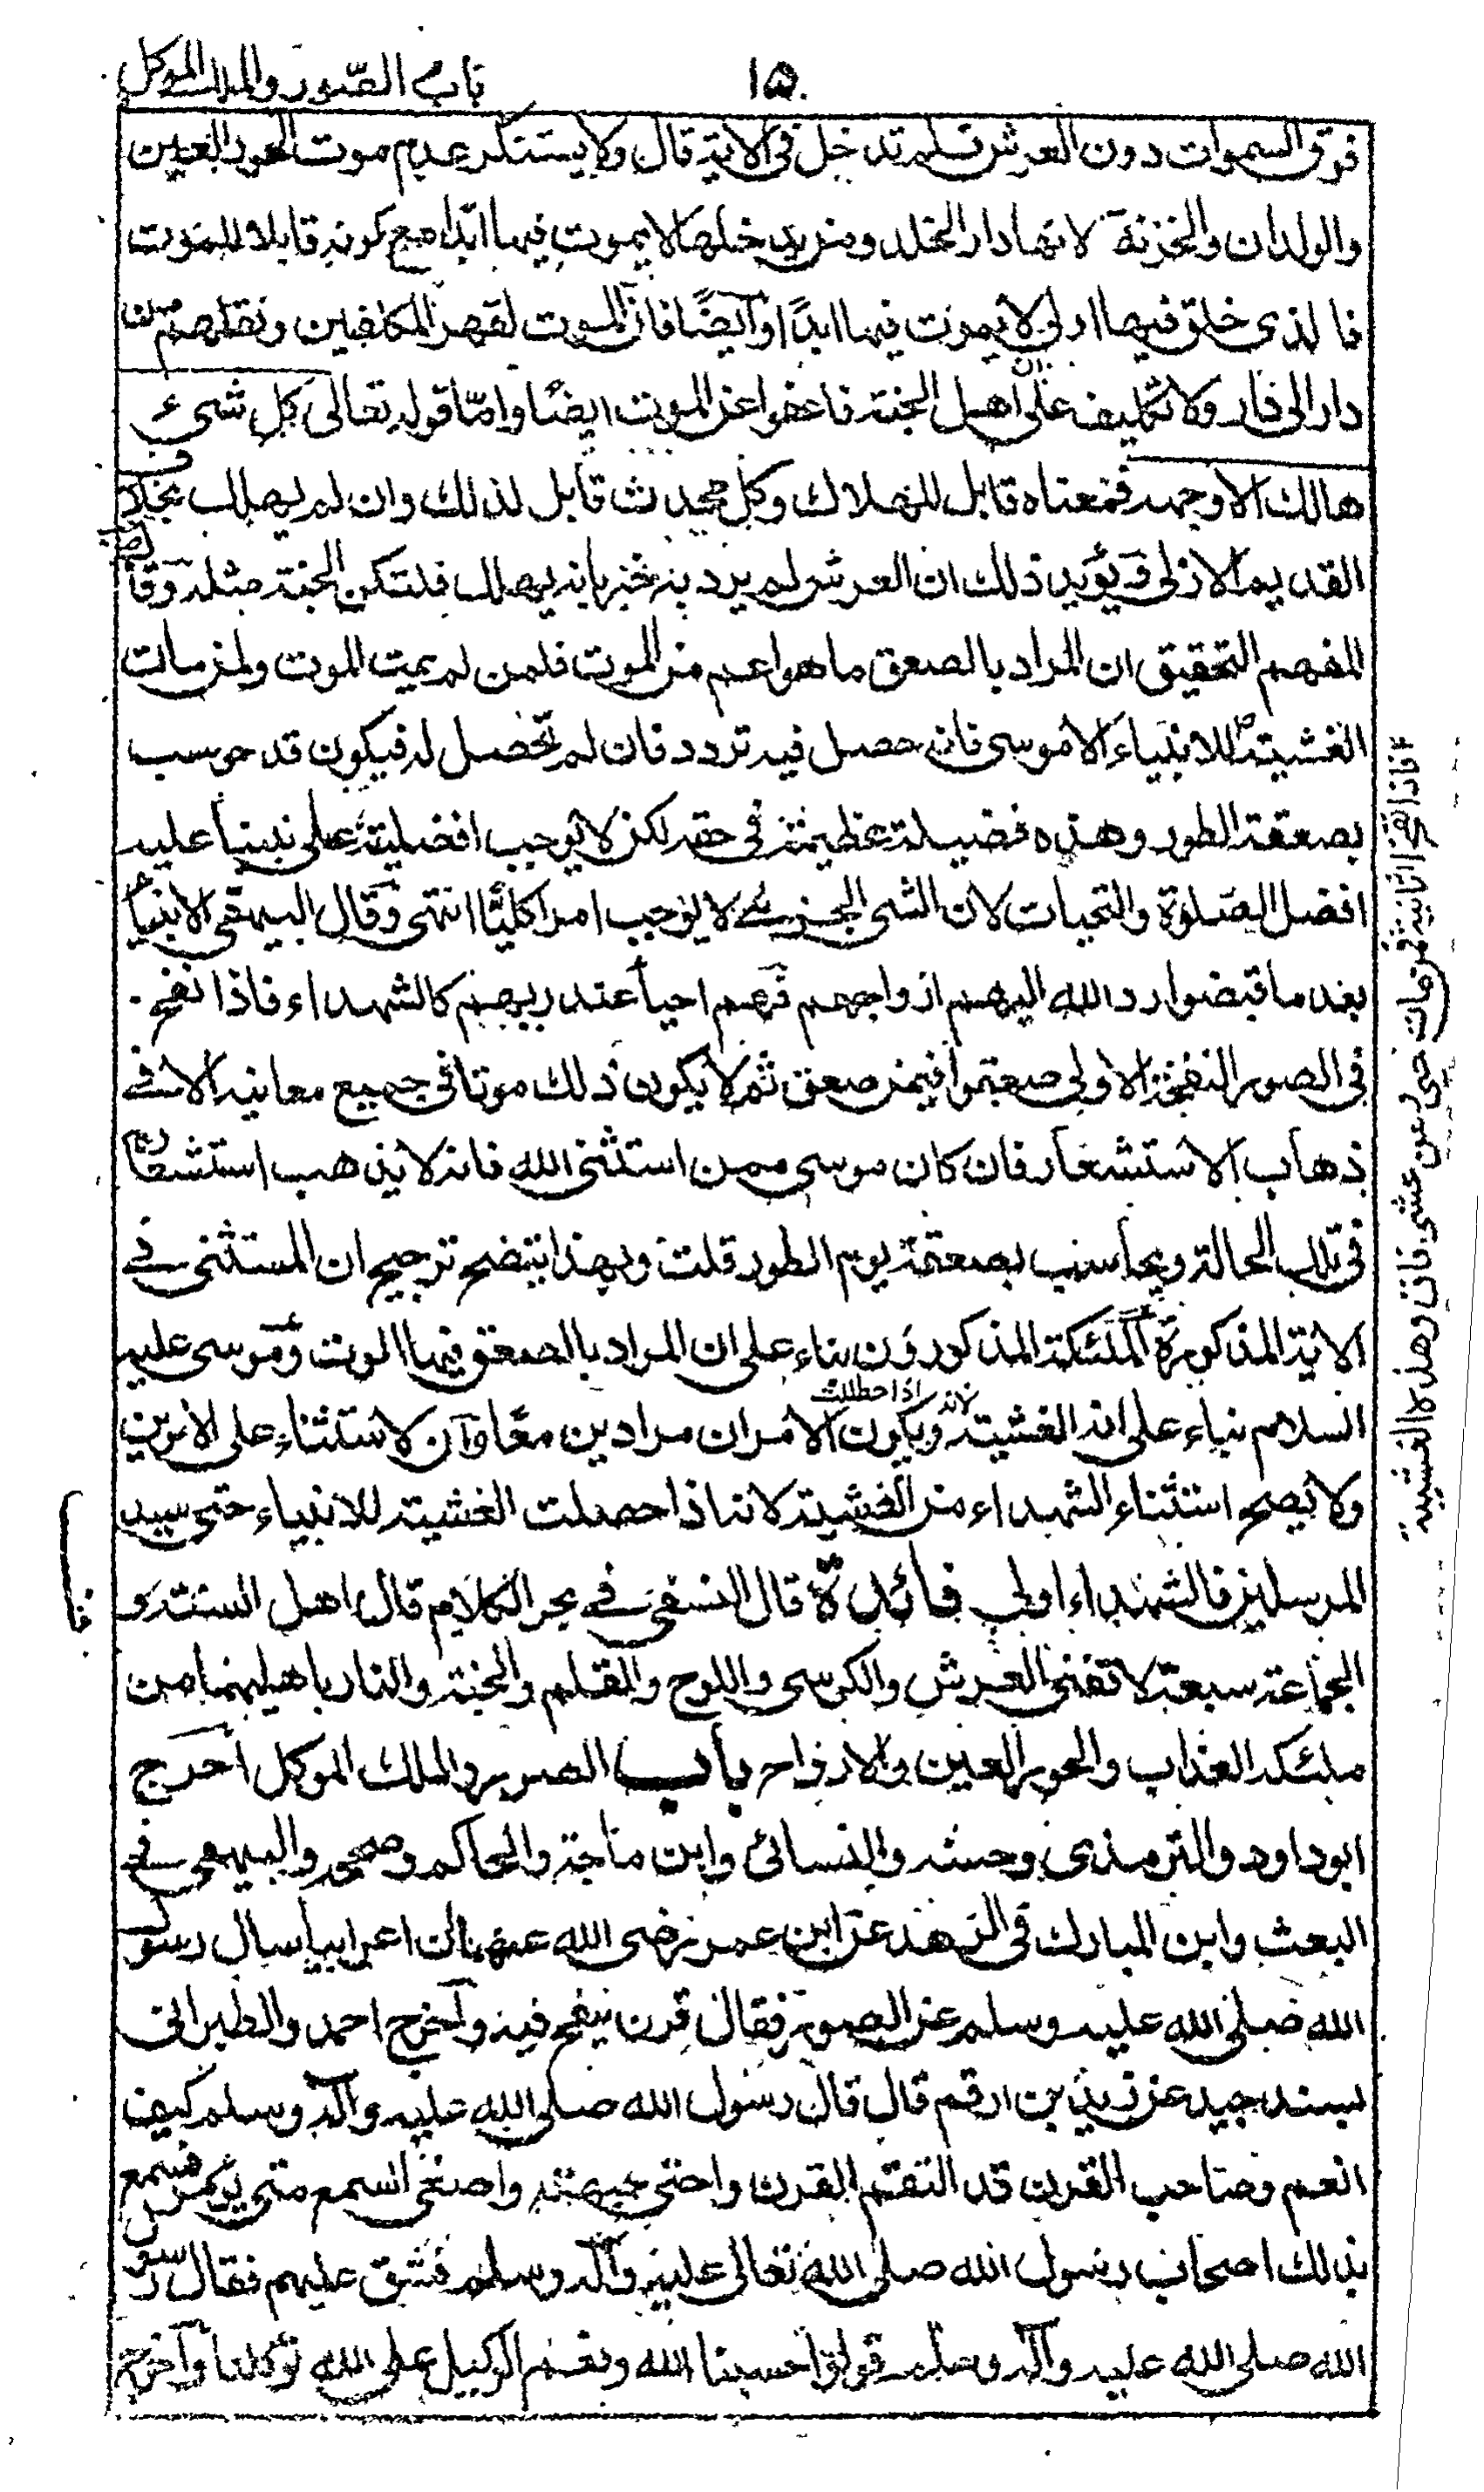 ١٥
باب الصّور والملك الموكل
فوق السموات دون العرش فلم تدخل فى الاية قال ولا يستنكر عدم موت الحور العين
والولدان والخزنة لانها دار الخلد ومن يدخلها لا يموت فيها ابدا مع كونه قابلا للموت
فالذى خلق فيها اولى لا يموت فيها ابدًا وايضًا فان الموت لقهر المكلفين ونقلهم من
دار الى دار ولا تكليف على اهل الجنة فاعفوا عن الموت ايضًا واما قوله تعالى كل شىء
هالك الا وجهه فمعناه قابل للهلاك وكل محدث قابل لذلك وان لم يهلك بخلاف
القديم الازلى ويؤيد ذلك ان العرش لم يرد به خبر بانه يهلك فلتكن الجنة مثله وقال صاحب
المفهم التحقيق ان المراد بالصعق ما هو اعم من الموت فلمن لم يمت الموت ولمن مات
الغشية للانبياء الا موسى فانه حصل فيه تردد فان لم تحصل له فيكون قد حوسب
بصعقة الطور وهذه فضيلة عظيمة فى حقه لكن لا يوجب افضليته على نبينا عليه
افضل الصّلوة والتحيات لان الشى الجزئى لا يوجب امرا كليًا انتهى وقال البيهقى الانبياء
بعد ما قبضوا رد الله اليهم ارواحهم فهم احياء عند ربهم كالشهداء فاذا نفخ
فى الصور النفخة الاولى صعقوا فيمن صعق ثم لا يكون ذلك موتا فى جميع معانيه الا فى
ذهاب الاستشعار فان كان موسى ممن استثنى الله فانه لا يذهب استشعاره
فى تلك الحالة ويحاسب بصعقة يوم الطور قلت وبهذا يتضح ترجيح ان المستثنى فى
الاية المذكورة الملئكة المذكورون بناء على ان المراد بالصعق فيها الموت وموسى عليه
السلام بناء على انه الغشية ويكون الامران مرادين معًا وان لاستثناء على الامرين
ولا يصح استثناء الشهداء من الغشية لانه اذا حصلت الغشية للانبياء حتى سيد
المرسلين فالشهداء اولى فائدة قال النسفى فى بحر الكلام قال اهل السنة و
الجماعة سبعة لا تفنى العرش والكرسى واللوح والقلم والجنة والنار باهليهما من
ملئكة العذاب والحور العين والارواح باب الصور والملك الموكل اخرج
ابو داود والترمذى وحسنه والنسائى وابن ماجة والحاكم وصححه والبيهقى فى
البعث وابن المبارك فى الزهد عن ابن عمر رضى الله عنهما ان اعرابيا سال رسول
الله صلى الله عليه وسلم عن الصور فقال قرن ينفخ فيه واخرج احمد والطبرانى
بسند جيد عن زيد بن ارقم قال قال رسول الله صلى الله عليه واله وسلم كيف
انعم وصاحب القرن قد التقم القرن واحنى جبهته واصغى السمع متى يؤمر فسمع
بذلك اصحاب رسول الله صلى الله تعالى عليه واله وسلم فشق عليهم فقال رسول
الله صلى الله عليه واله وسلم قولوا حسبنا الله ونعم الوكيل على الله توكلنا واخرج
فاذا نفخ الثانية فمن مات حيى ومن غشى فاق وهل لا الغشية